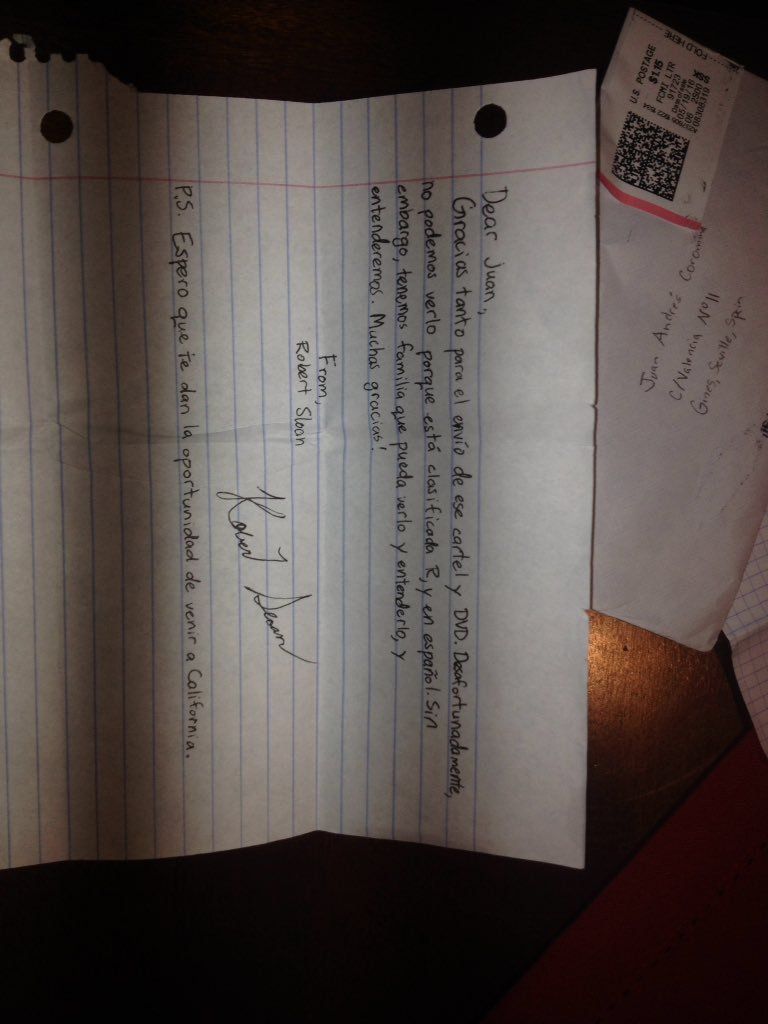 Dear Juan,
Gracias tanto para el envío de ese cartel y DVD. Desafortunadamente,
no podemos verlo porque está clasificada R, y en español. Sin
embargo, tenemos familia que pueda verlo y entenderlo, y
entenderemos. Muchas gracias!
From,
Robert Sloan
P.S. Espero que te dan la oportunidad de venir a California.
FOLD HERE
U.S. POSTAGE
$1.15
FCMI LTR
91723
05/19/16
Juan Andres
C/Valencia Nº11
Gines, Seville, Spain